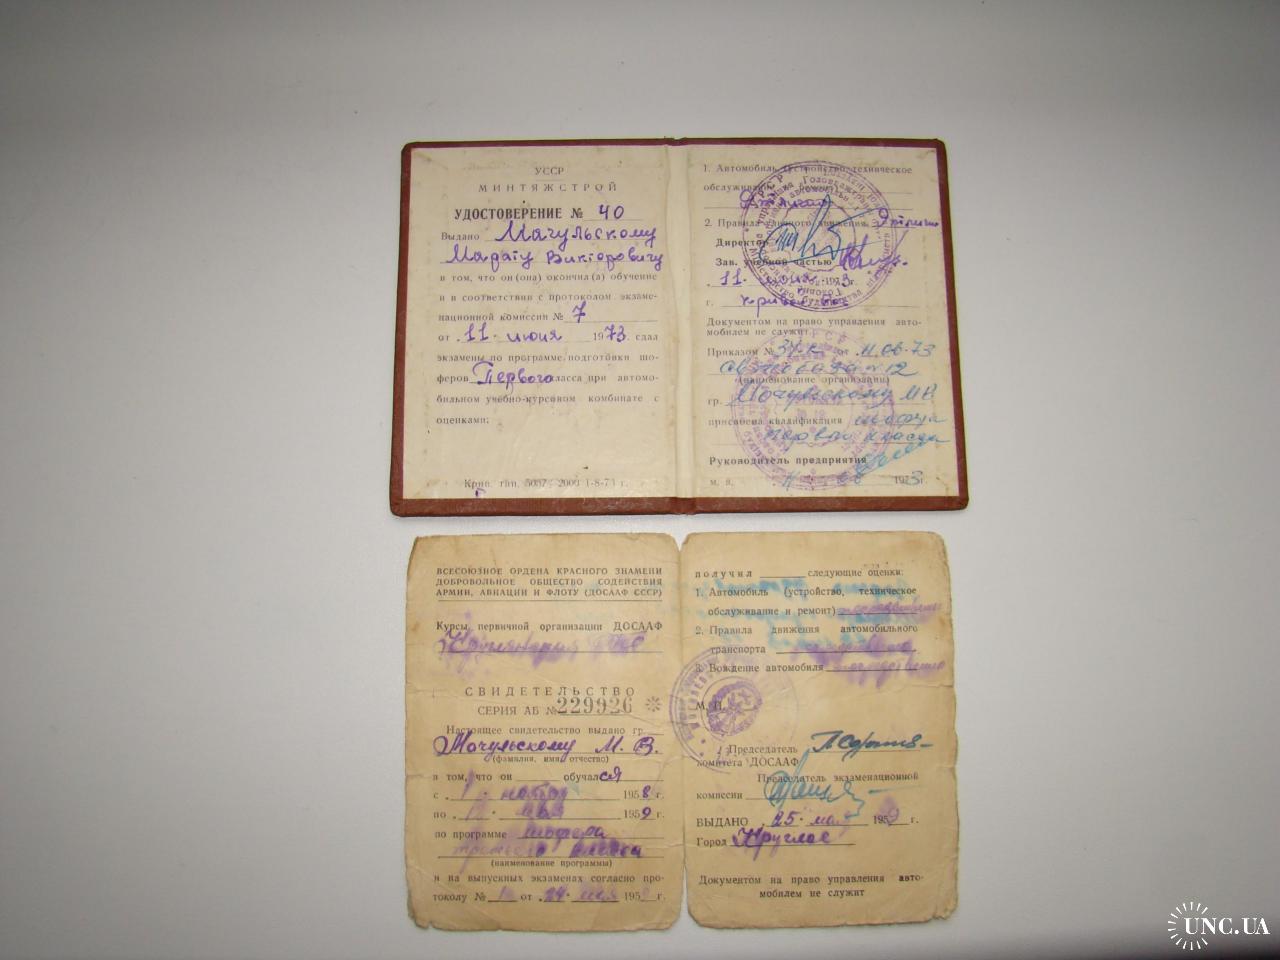 УССР
МИНТЯЖСТРОЙ
УДОСТОВЕРЕНИЕ № 40
Выдано Мачульскому
Марату Викторовичу
в том, что он(она) окончил(а) обучение
и в соответствии с протоколом экзаме-
национной комиссии № 7
от „11“ июня 1973 сдал
экзамены по программе подготовки шо-
феров Первого класса при автомо-
бильном учебно-курсовом комбинате с
оценками:
Крив. тип. 5037 2000 1-8-73 г.
1. Автомобиль (устройство, техническое
обслуживание и ремонт)
Отлично
2. Правила уличного движения Отлично
Директор
Зав. учебной частью
„11“ 1973г.
г. Кривой Рог
Документом на право управления авто-
мобилем не служит.
Приказом № от 11.06.73
автобаза № 12
(наименование организации)
гр. Мочульскому МВ
присвоена квалификация шофера
первого класса
Руководитель предприятия
м. п. 1973г.
ВСЕСОЮЗНОЕ ОРДЕНА КРАСНОГО ЗНАМЕНИ
ДОБРОВОЛЬНОЕ ОБЩЕСТВО СОДЕЙСТВИЯ
АРМИИ, АВИАЦИИ И ФЛОТУ (ДОСААФ СССР)
Курсы первичной организации ДОСААФ
СВИДЕТЕЛЬСТВО
СЕРИЯ АБ № 229926
Настоящее свидетельство выдано гр.
Мочульскому М. В.
(фамилия, имя, отчество)
в том, что он обучался
с „1“ ноября 1958 г.
по мая 1959 г.
по программе шофера
третьего класса
(наименование программы)
и на выпускных экзаменах согласно про-
токолу № от „24“ мая 1959 г.
получил следующие оценки:
1. Автомобиль (устройство, техническое
обслуживание и ремонт)
2. Правила движения автомобильного
транспорта
3. Вождение автомобиля
М. П.
Председатель
комитета ДОСААФ
Председатель экзаменационной
комиссии
ВЫДАНО „25“ мая 1959 г.
Город Круглое
Документом на право управления авто-
мобилем не служит
UNC.UA